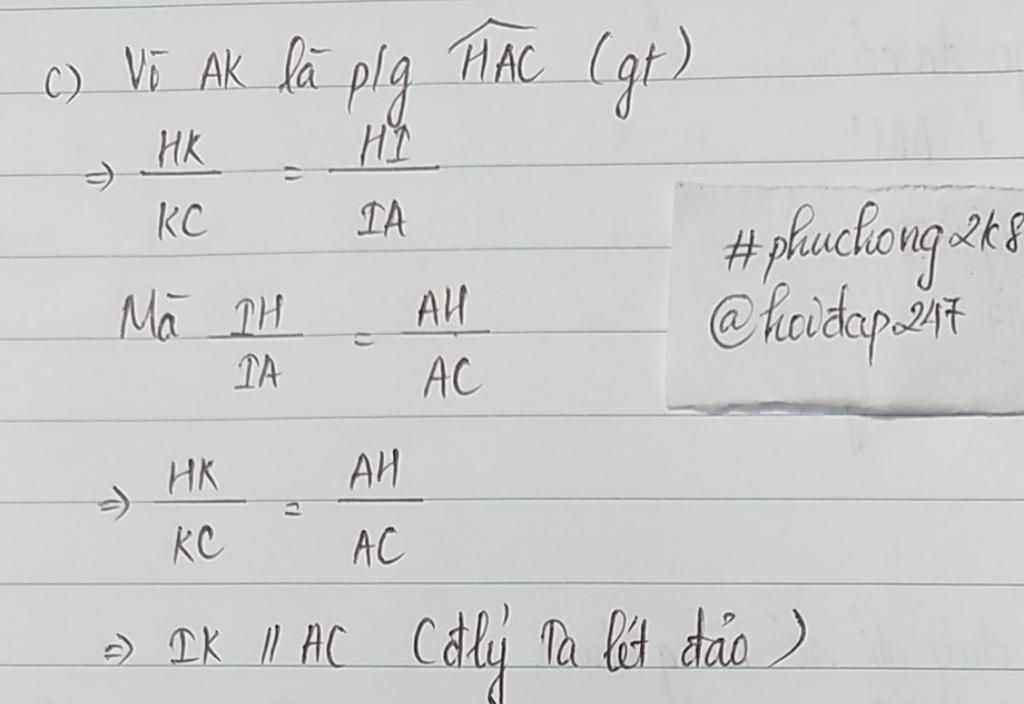 c) Vì AK là p/g \widehat{HAC} (gt)
⇒ \frac{HK}{KC} = \frac{HI}{IA}
#phuchong2k8
@hoidap247
Mà \frac{IH}{IA} = \frac{AH}{AC}
⇒ \frac{HK}{KC} = \frac{AH}{AC}
⇒ IK // AC (đlý Ta lét đảo)